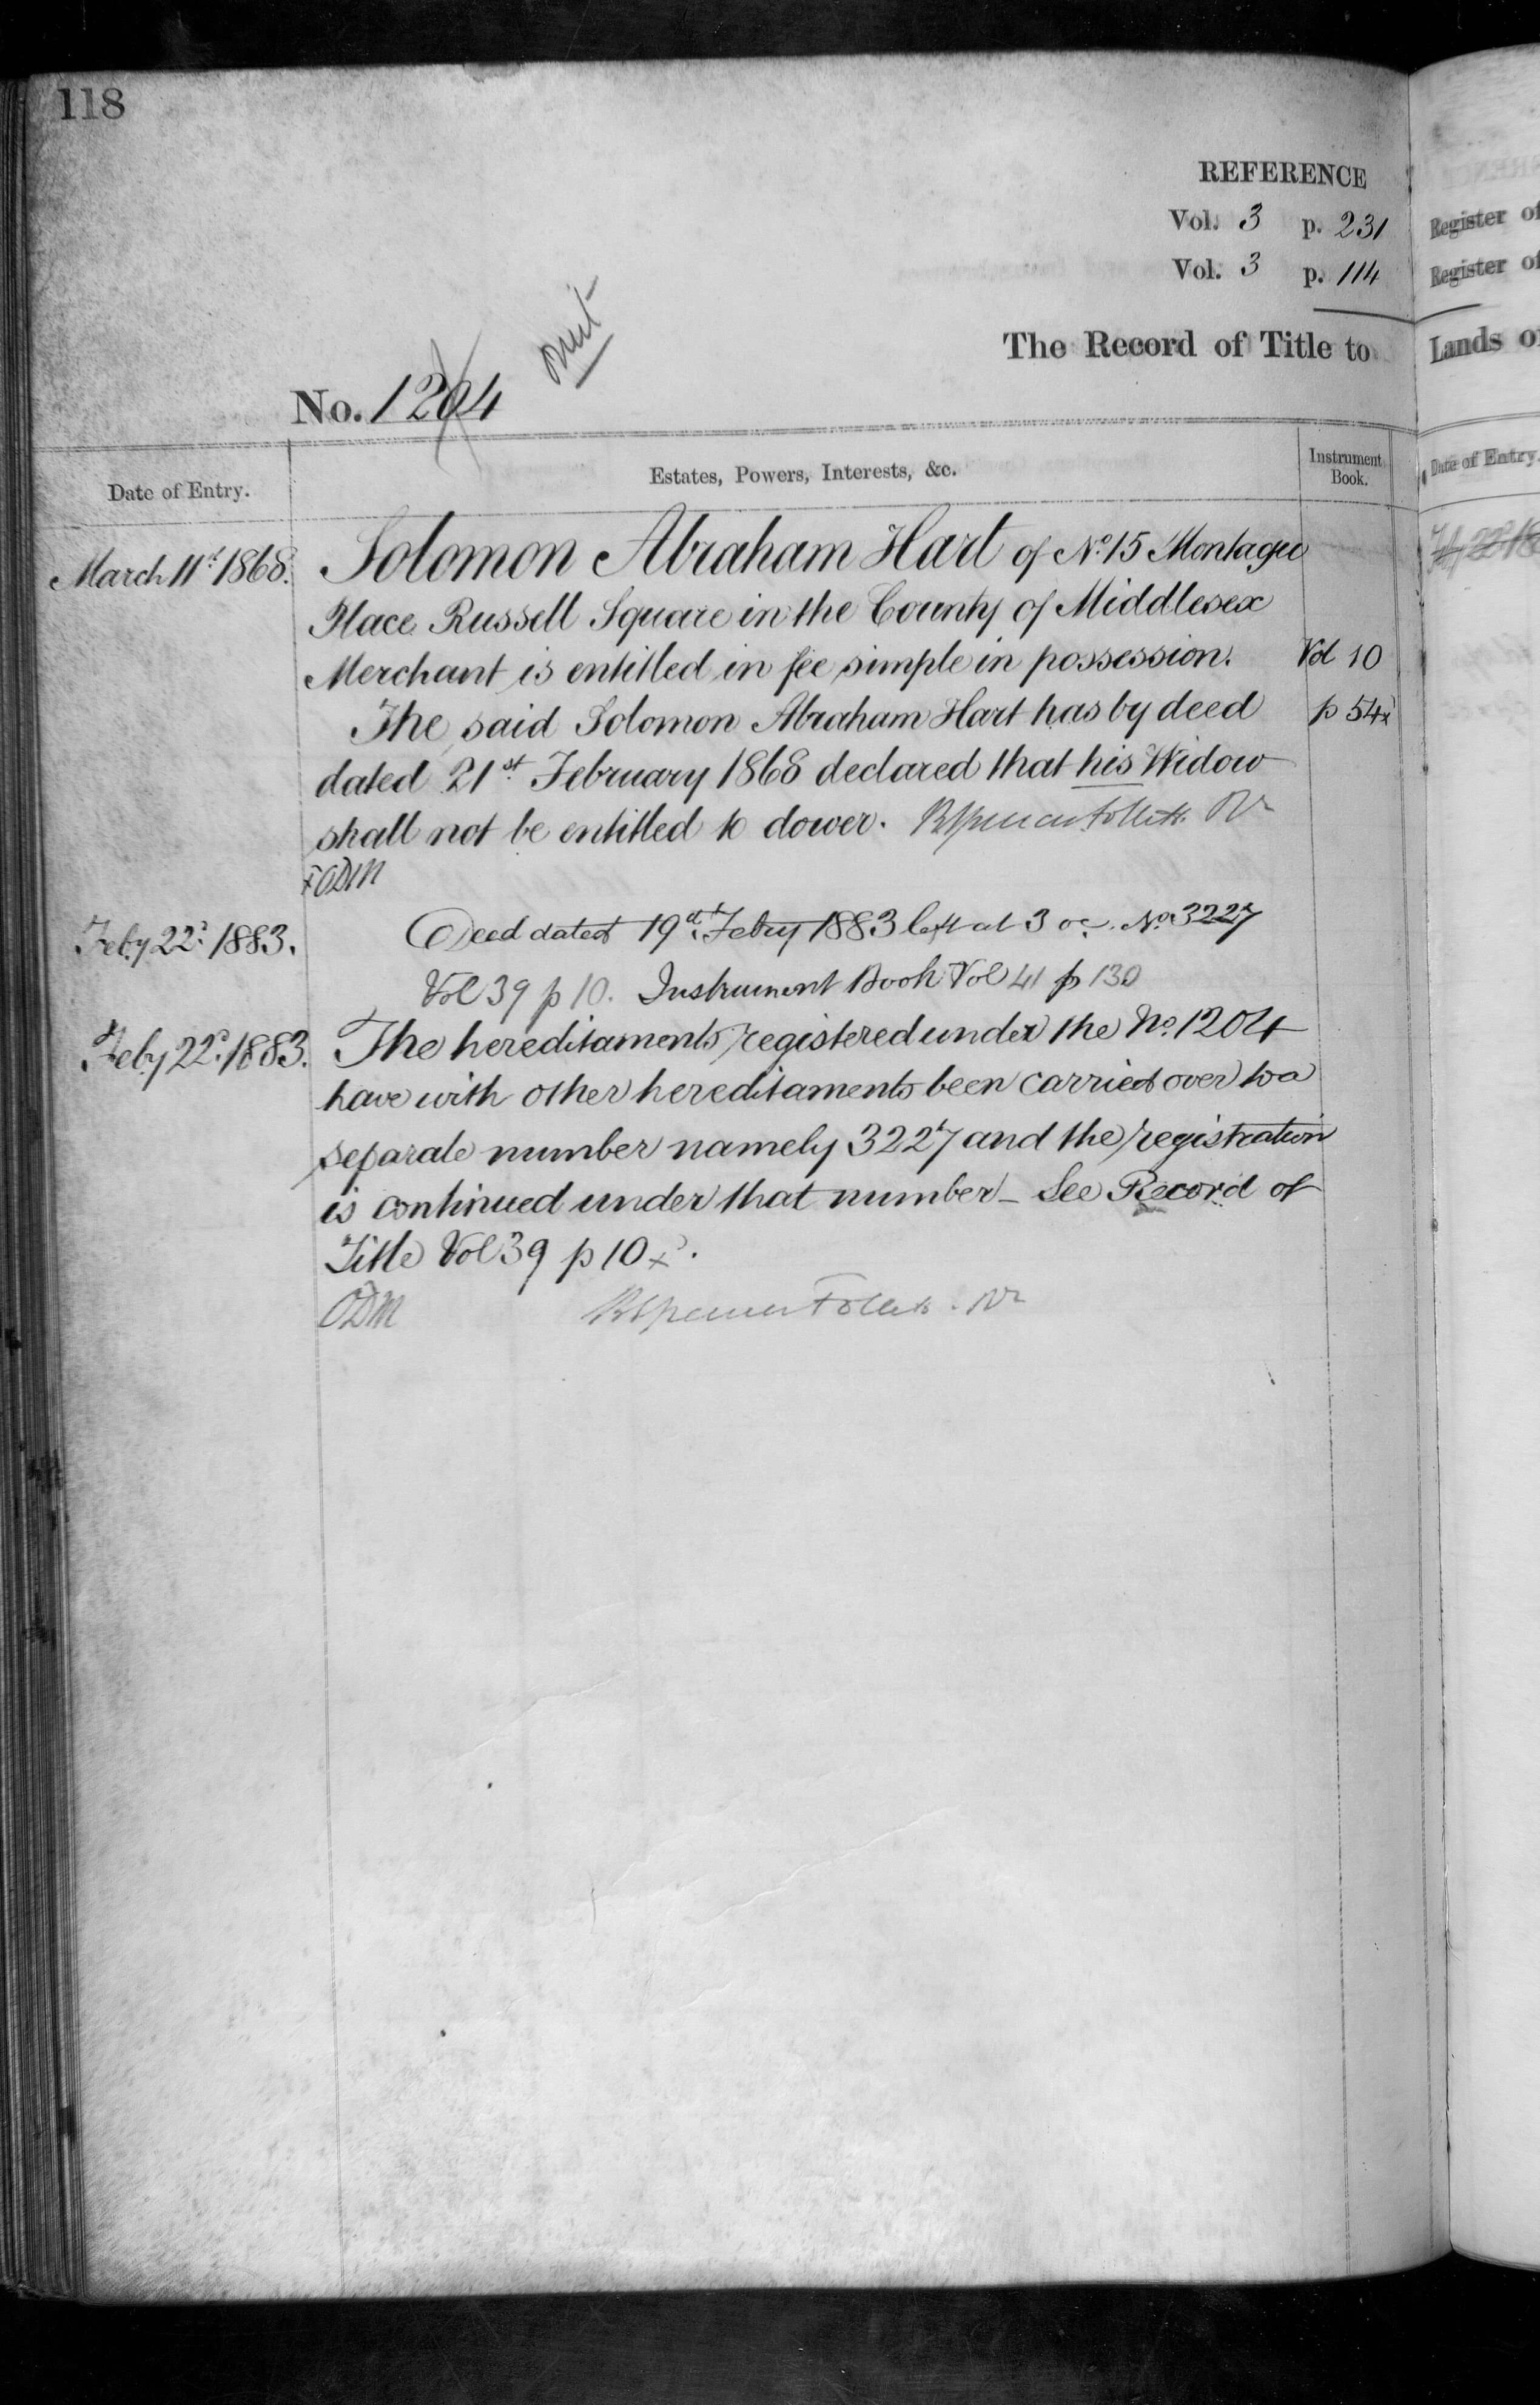 118
REFERENCE
Vol. 3 p. 231
Vol. 3 p. 114
The Record of Title to
No. 1204 omit
Date of Entry. Estates, Powers, Interests, &c. Instrument Book.
March 11th 1868. Solomon Abraham Hart of No 15 Montague
Place Russell Square in the County of Middlesex
Merchant is entitled in fee simple in possession. Vol 10
The said Solomon Abraham Hart has by deed p 54x
dated 21st February 1868 declared that his Widow
shall not be entitled to dower. RSpencer Follett. Rr
x ODM
Feby 22d 1883. Deed dated 19th Febry 1883 left at 3 oc. No 3227
Vol 39 p 10. Instrument Book Vol 41 p 130
Feby 22d 1883. The hereditaments registered under the No. 1204
have with other hereditaments been carried over to a
separate number namely 3227 and the registration
is continued under that number - See Record of
Title Vol 39 p 10 x.
ODM RSpencer Follett. Rr
Register of
Register of
Lands o
Date of Entry.